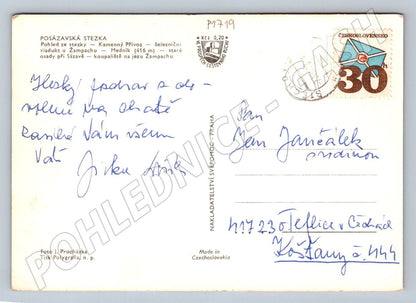 P1719
POSÁZAVSKÁ STEZKA
Pohled ze stezky — Kamenný Přívoz — železniční
viadukt v Žampachu — Medník (416 m) — staré
osady při Sázavě — koupaliště na jezu Žampachu
Kčs 0,20
ČESKOSLOVENSKO
30h
Hezký pozdrav z do-
volené na chatě
zasílá Vám všem
Váš Jirka
Pan
Jan Jančálek
417 23 Teplice v Čechách
Košťany č. 444
NAKLADATELSTVÍ PRAHA
Foto J. Procházka
Tisk Polygrafia, n. p.
Made in
Czechoslovakia
POHLEDNICE - GASH